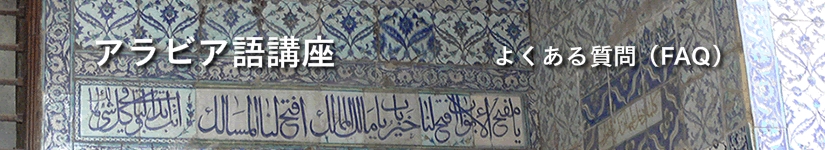 アラビア語講座 よくある質問（FAQ）
يا مفتح الابواب افتح لنا خير باب يا مالك الممالك افتح لنا المسالك